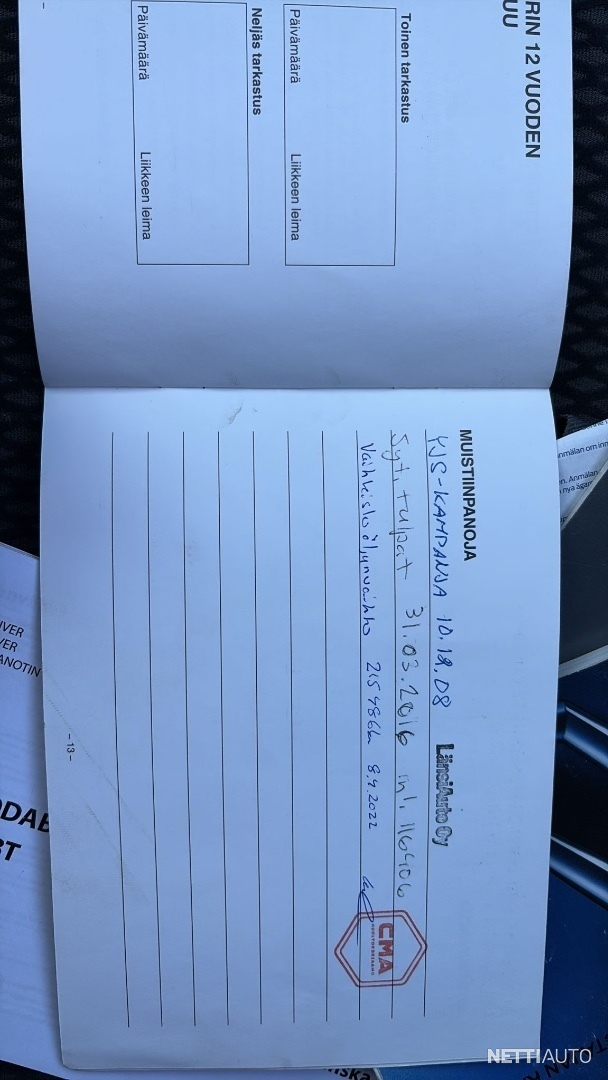 RIN 12 VUODEN
UU
Toinen tarkastus
Päivämäärä Liikkeen leima
Neljäs tarkastus
Päivämäärä Liikkeen leima
MUISTIINPANOJA
YJS-KAMPANJA 10.12.08 LänsiAuto Oy
Syt. tulpat 31.03.2016 ml. 116406
Vaihteistoöljynvaihto 215486km 8.4.2022
CMA
– 13 –
NETTIAUTO